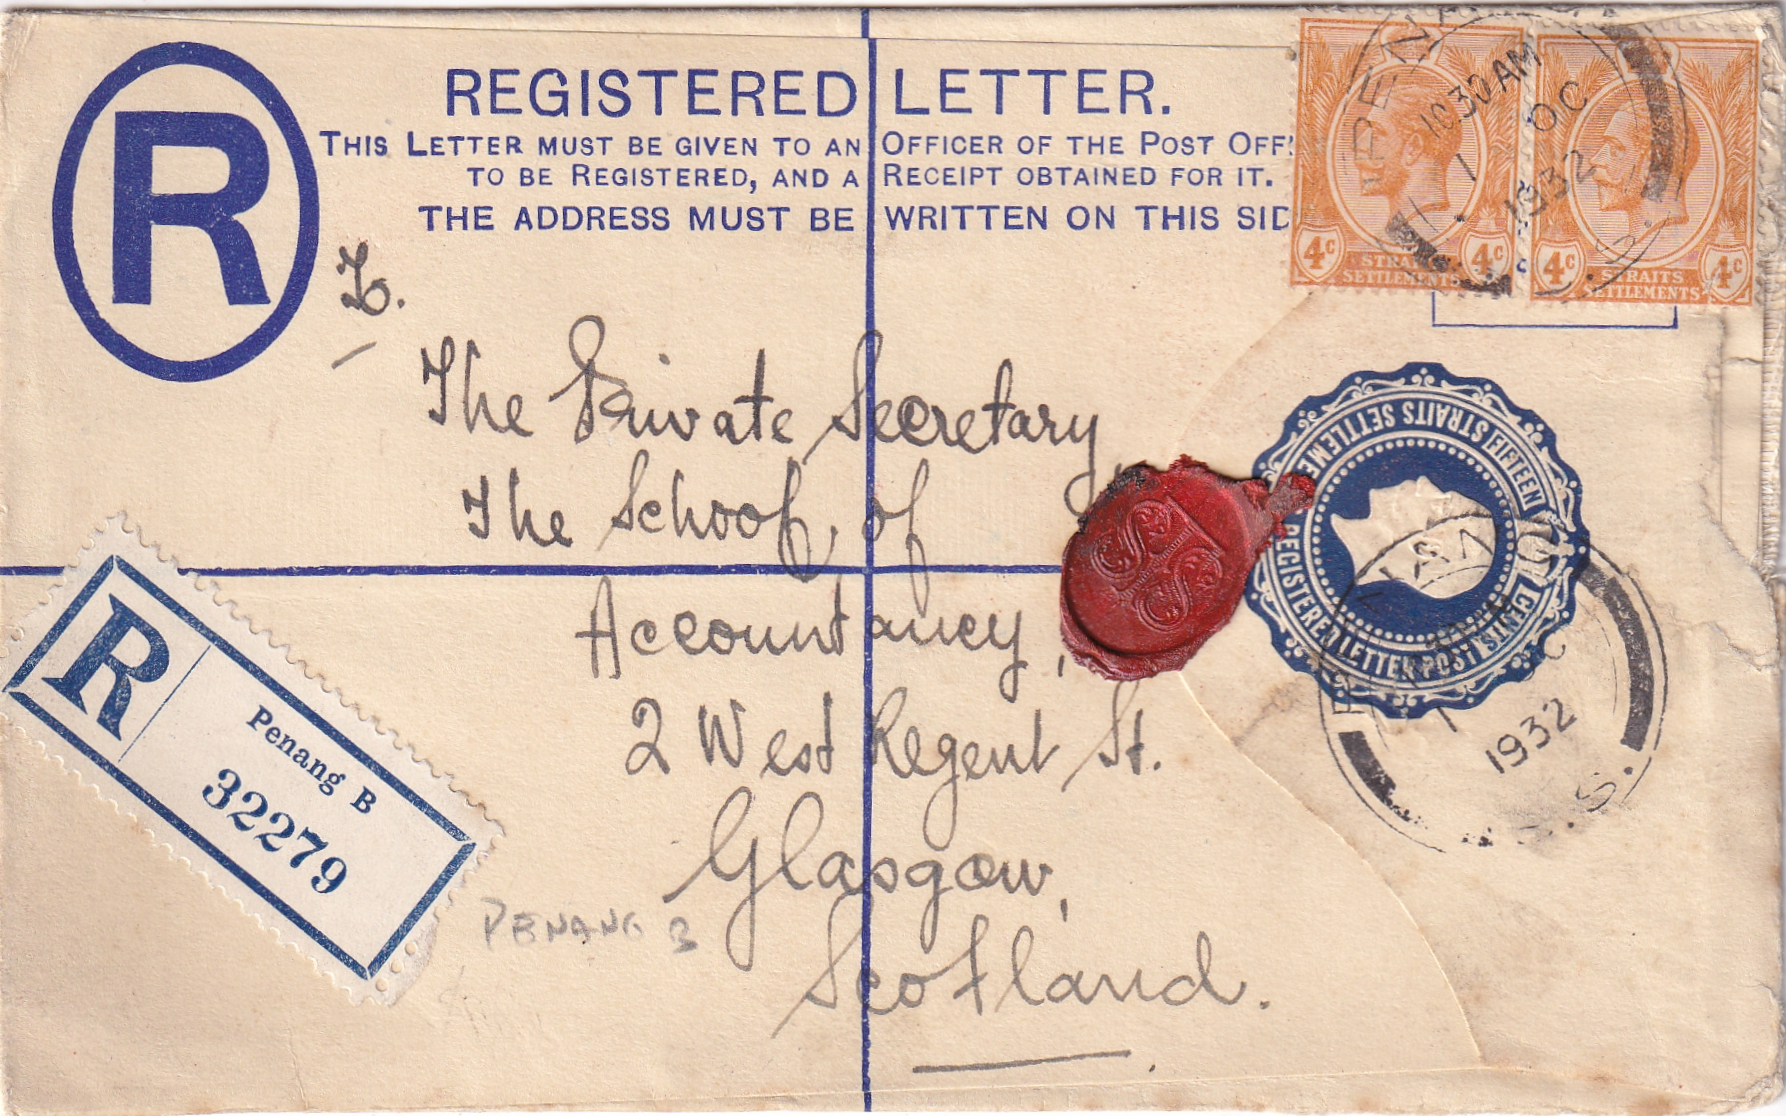 REGISTERED LETTER.
THIS LETTER MUST BE GIVEN TO AN OFFICER OF THE POST OFF
TO BE REGISTERED, AND A RECEIPT OBTAINED FOR IT.
THE ADDRESS MUST BE WRITTEN ON THIS SID
R
To.
The Private Secretary,
The School of
Accountancy,
2 West Regent St.
Glasgow,
Scotland.
R
Penang B
32279
PENANG B
4c STRAITS SETTLEMENTS 4c
4c STRAITS SETTLEMENTS 4c
PENANG
10 30 AM
1 OC
1932
STRAITS SETTLEMENTS
REGISTERED LETTER POSTAGE
FIFTEEN CENTS
PENANG
1 OC
1932
S.S.